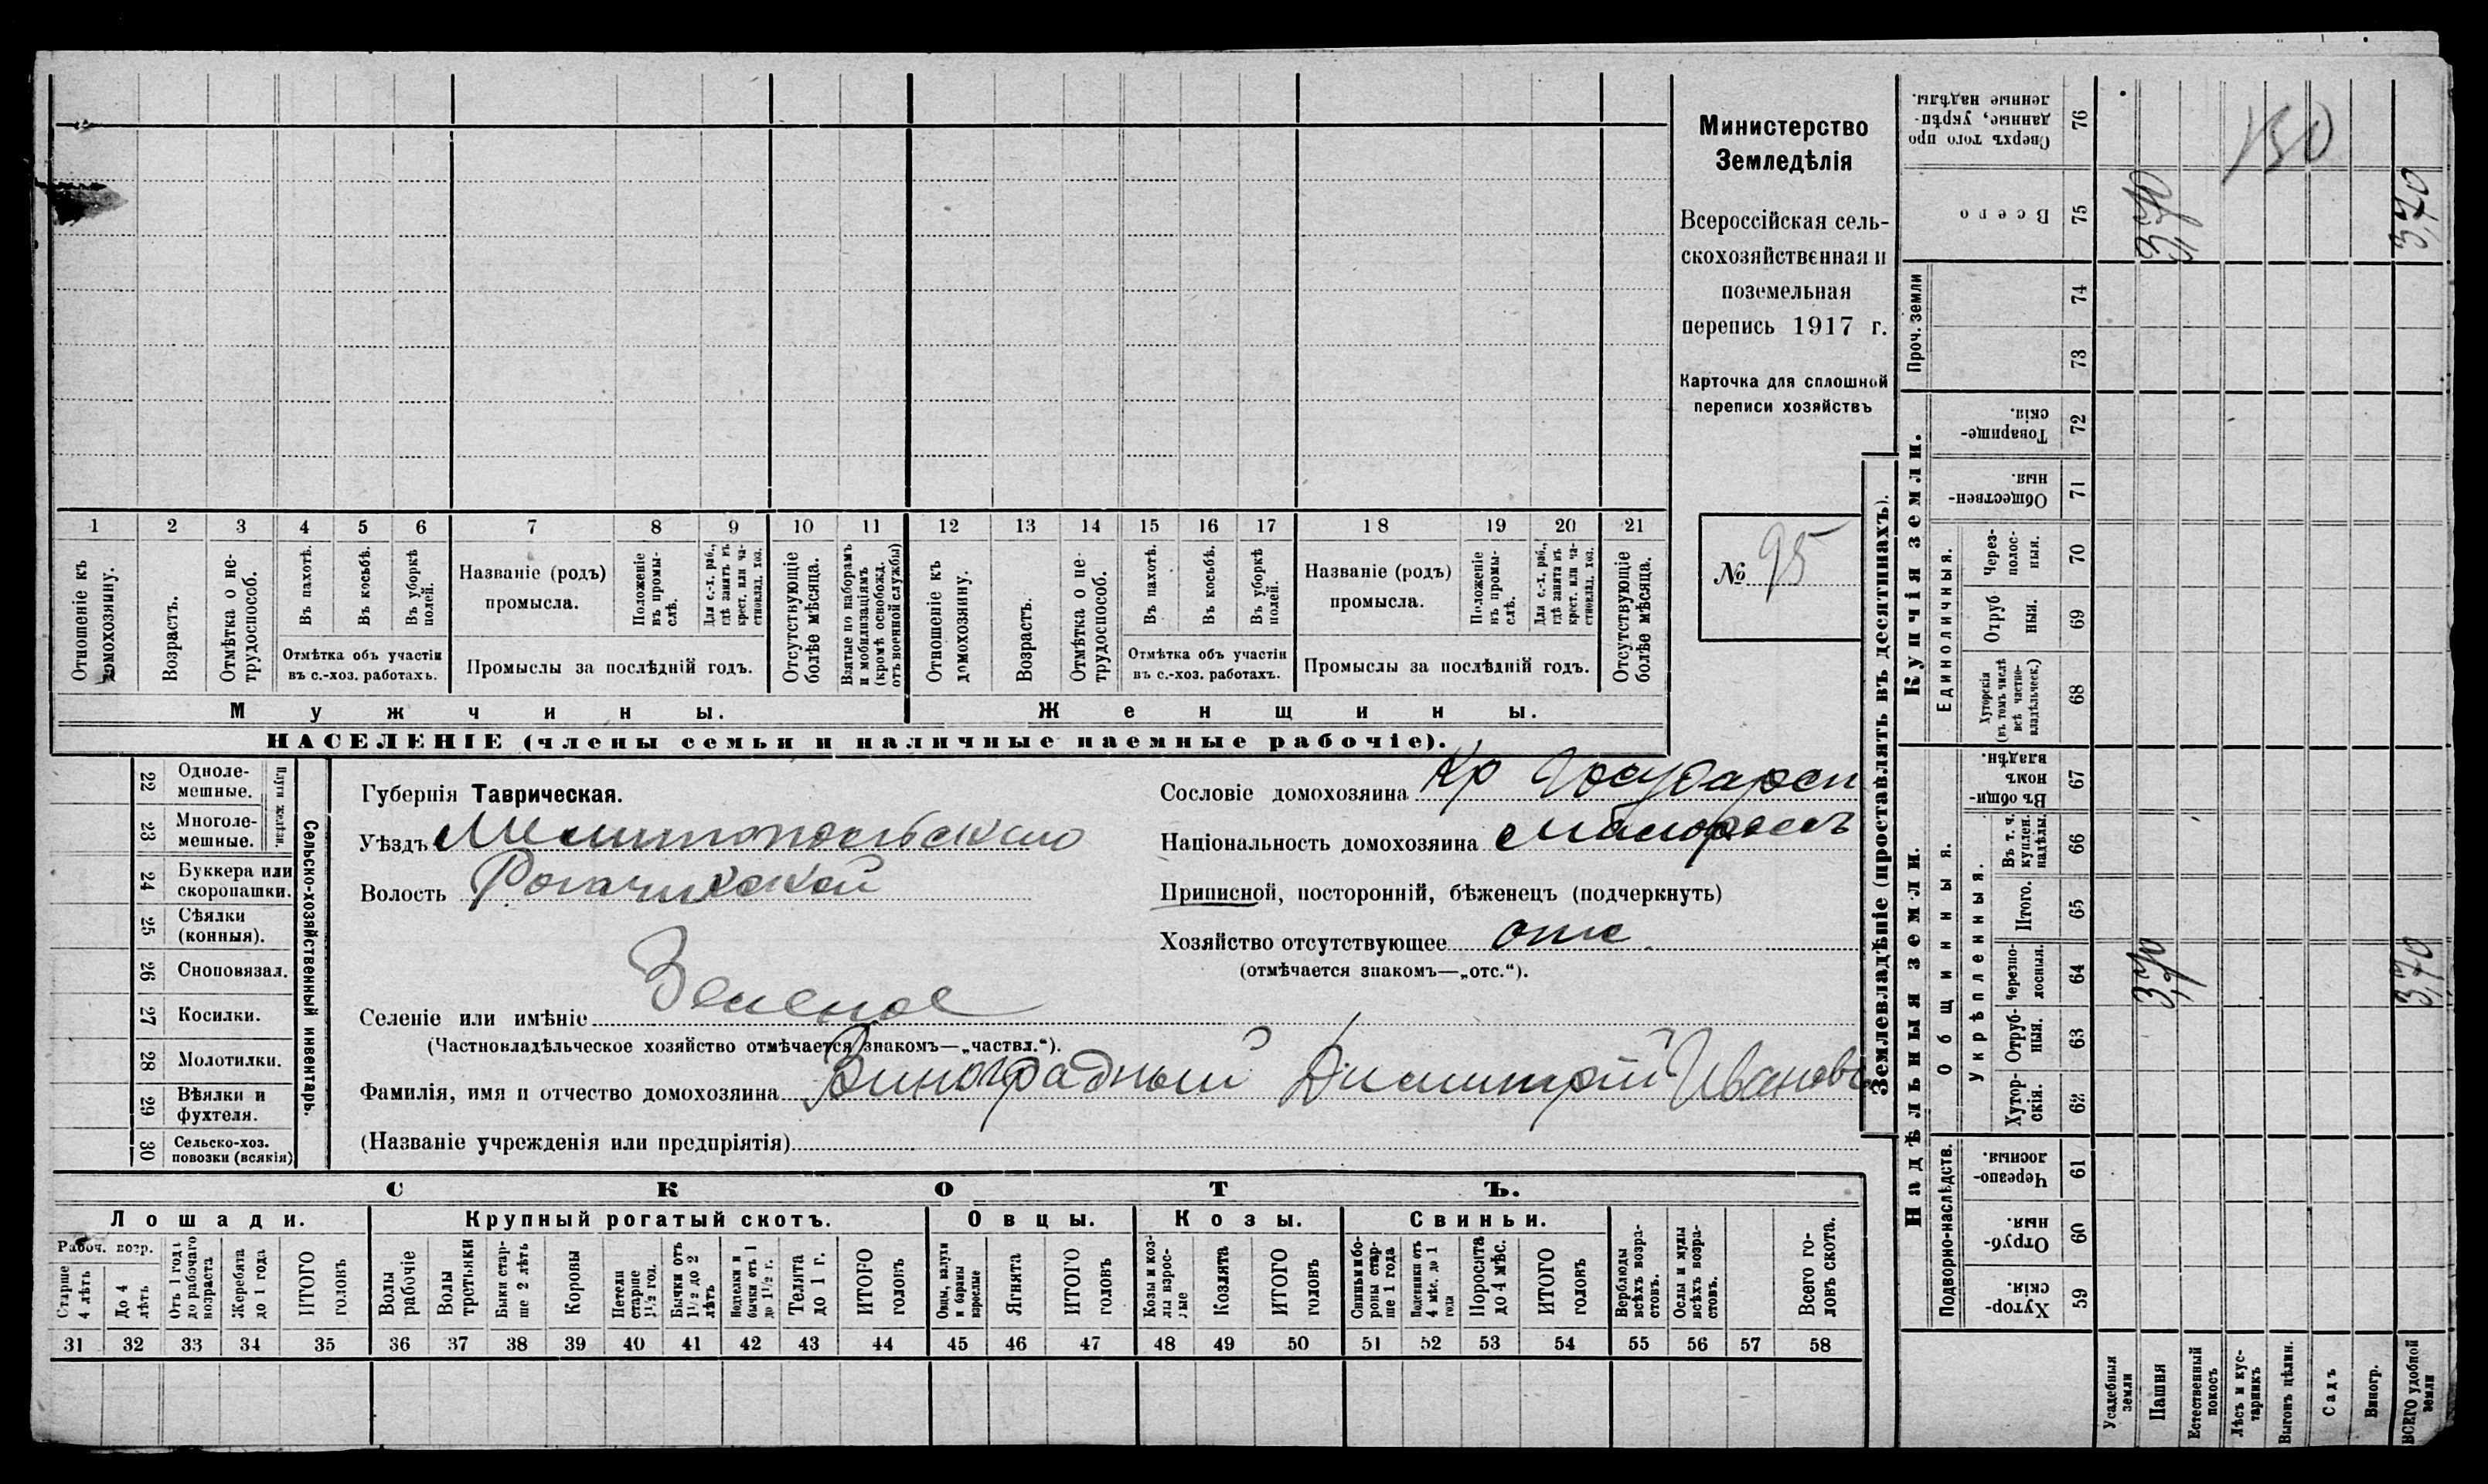 1 2 3 4 5 6 7 8 9 10 11 12 13 14 15 16 17 18 19 20 21
Отношеніе къ домохозяину.
Возрастъ.
Отмѣтка о не-
трудоспособ.
Въ пахотѣ.
Въ косьбѣ.
Въ уборкѣ
полей.
Отмѣтка объ участіи
въ с.-хоз. работахъ.
Названіе (родъ)
промысла.
Положеніе
въ промы-
слѣ.
Для с.-х. раб.,
гдѣ занятъ въ
крест. или ча-
стновлад. хоз.
Промыслы за послѣдній годъ.
Отсутствующіе
болѣе мѣсяца.
Взятые по наборамъ
и мобилизаціямъ
(кромѣ освобожд.
отъ военной службы)
Отношеніе къ
домохозяину.
Возрастъ.
Отмѣтка о не-
трудоспособ.
Въ пахотѣ.
Въ косьбѣ.
Въ уборкѣ
полей.
Отмѣтка объ участіи
въ с.-хоз. работахъ.
Названіе (родъ)
промысла.
Положеніе
въ промы-
слѣ.
Для с.-х. раб.,
гдѣ занята въ
крест. или ча-
стновлад. хоз.
Промыслы за послѣдній годъ.
Отсутствующіе
болѣе мѣсяца.
Мужчины.
Женщины.
НАСЕЛЕНІЕ (члены семьи и наличные наемные рабочіе).
Министерство
Земледѣлія
Всероссійская сель-
скохозяйственная и
поземельная
перепись 1917 г.
Карточка для сплошной
переписи хозяйствъ
№ 95
22 Одноле-
мешные.
23 Многоле-
мешные.
Плуги желѣзн.
24 Буккера или
скоропашки.
25 Сѣялки
(конныя).
26 Сноповязал.
27 Косилки.
28 Молотилки.
29 Вѣялки и
фухтеля.
30 Сельско-хоз.
повозки (всякія)
Сельско-хозяйственный инвентарь.
Губернія Таврическая.
Уѣздъ Мелитопольскаго
Волость Рогачикской
Селеніе или имѣніе Зеленое
(Частновладѣльческое хозяйство отмѣчается знакомъ—„частвл.“).
Фамилія, имя и отчество домохозяина Виноградный Димитрій Ивановъ
(Названіе учрежденія или предпріятія)
Сословіе домохозяина Кр Государст
Національность домохозяина малороссъ
Приписной, посторонній, бѣженецъ (подчеркнуть)
Хозяйство отсутствующее отс.
(отмѣчается знакомъ—„отс.“).
СКОТЪ.
Лошади.
Рабоч. возр.
Старше
4 лѣтъ
До 4
лѣтъ
Отъ 1 года
до рабочаго
возраста
Жеребята
до 1 года
ИТОГО
головъ
Крупный рогатый скотъ.
Волы
рабочіе
Волы
третьяки
Быки стар-
ше 2 лѣтъ
Коровы
Нетели
старше
1½ год.
Бычки отъ
1½ до 2
лѣтъ
Нетельки и
бычки отъ 1
до 1½ г.
Телята
до 1 г.
ИТОГО
головъ
Овцы.
Овцы, валухи
и бараны
взрослые
Ягнята
ИТОГО
головъ
Козы.
Козы и коз-
лы взрос-
лые
Козлята
ИТОГО
головъ
Свиньи.
Свиньи и бо-
ровы стар-
ше 1 года
Подсвинки отъ
4 мѣс. до 1
года
Поросята
до 4 мѣс.
ИТОГО
головъ
Верблюды
всѣхъ возра-
стовъ.
Ослы и мулы
всѣхъ возра-
стовъ.
Всего го-
ловъ скота.
31 32 33 34 35 36 37 38 39 40 41 42 43 44 45 46 47 48 49 50 51 52 53 54 55 56 57 58
Землевладѣніе (проставлять въ десятинахъ).
Надѣльныя земли.
Подворно-наслѣдств.
Хутор-
скія.
59
Отруб-
ныя.
60
Черезпо-
лосныя.
61
Общинныя.
Укрѣпленныя.
Хутор-
скія.
62
Отруб-
ныя.
63
Черезпо-
лосныя.
64
Итого.
65
Въ т. ч.
куплен.
надѣлы.
66
Въ общи-
номъ
владѣн.
67
Купчія земли.
Единоличныя.
Хуторскія
(въ томъ числѣ
всѣ частно-
владѣльческ.)
68
Отруб
ныя.
69
Через-
полос-
ныя.
70
Обществен-
ныя
71
Товарище-
скія.
72
Проч. земли
73
74
Всего
75
Сверхъ того про
данные, укрѣп-
ленные надѣлы.
76
Усадебныя
земли
Пашня
Естественный
покосъ
Лѣсъ и кус-
тарникъ
Выгонъ цѣлин.
Садъ
Виногр.
ВСЕГО удобной
земли
3,70
3,70
3,70
3,70
150